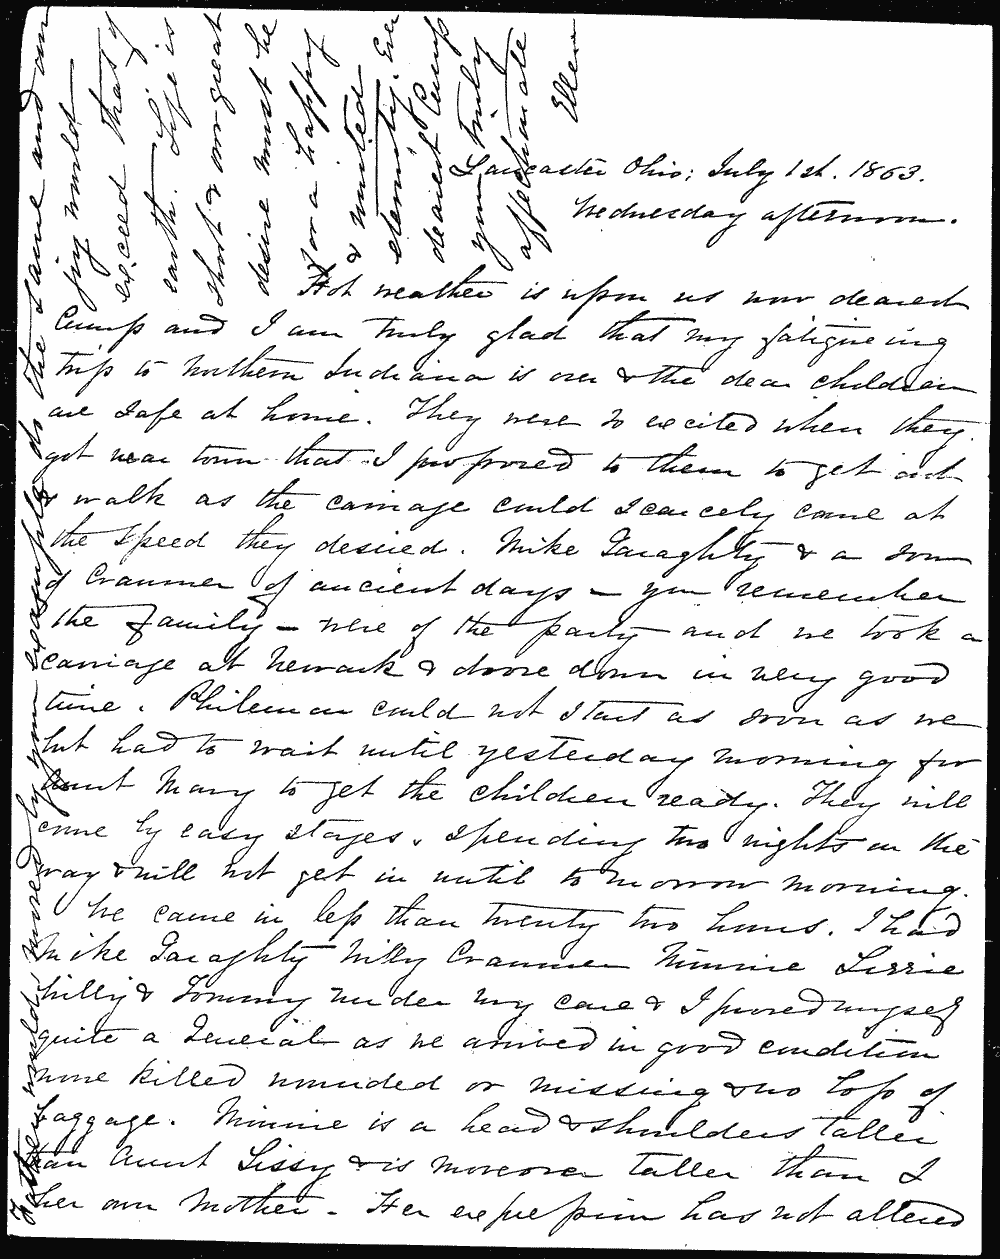 Lancaster Ohio; July 1st. 1863.
Wednesday afternoon.
Hot weather is upon us now dearest
Cump and I am truly glad that my fatigueing
trip to Northern Indiana is over & the dear children
are safe at home. They were so excited when they
got near town that I proposed to them to get out
& walk as the carriage could scarcely come at
the speed they desired. Mike Garaghty & a son
of Cranmer of ancient days – you remember
the family – were of the party and we took a
carriage at Newark & drove down in very good
time. Philemon could not start as soon as we
but had to wait until yesterday morning for
Aunt Mary to get the children ready. They will
come by easy stages, spending two nights on the
way & will not get in until tomorrow morning.
We came in less than twenty two hours. I had
Mike Garaghty Willy Cranmer Minnie Lizzie
Willy & Tommy under my care & I proved myself
quite a General as we arrived in good condition
none killed wounded or missing & no loss of
baggage. Minnie is a head & shoulders taller
than Aunt Sissy & is moreover taller than I
her own Mother – Her expression has not altered
Father would, moved by your example do the same and our
joy would
exceed that of
earth. Life is
short & our great
desire must be
for a happy
& united
eternity. Ever
dearest Cump
your truly
affectionate
Ellen